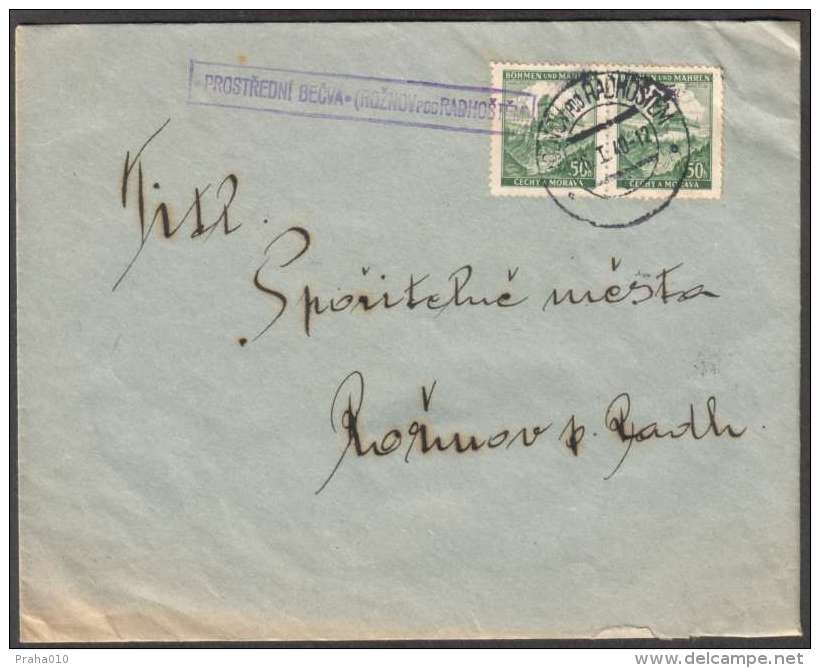 PROSTŘEDNÍ BEČVA (ROŽNOV POD RADHOŠTĚM)
BÖHMEN UND MÄHREN
UND MÄHREN
POD RADHOŠTĚM
I. 40-12
50h
50h
ČECHY A MORAVA
ČECHY A MORAVA
Titl.
Spořitelně města
Rožnov p. Radh.
Praha010
delcampe.net